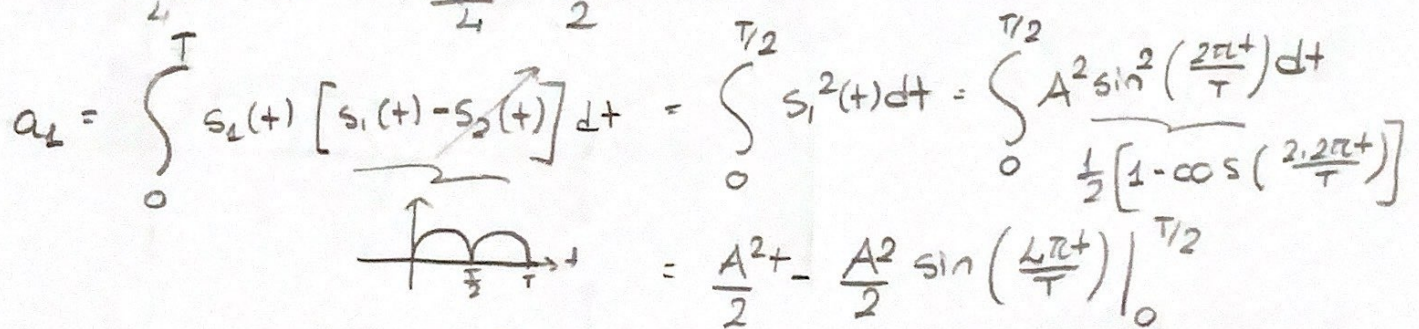 4 2
a₁ = ∫₀ᵀ s₁(t) [s₁(t) - s₂(t)] dt = ∫₀^(T/2) s₁²(t) dt = ∫₀^(T/2) A² sin² (2πt/T) dt
1/2 [1 - cos (2.2πt/T)]
T/2 T t
= A²t/2 - A²/2 sin (4πt/T) |₀^(T/2)